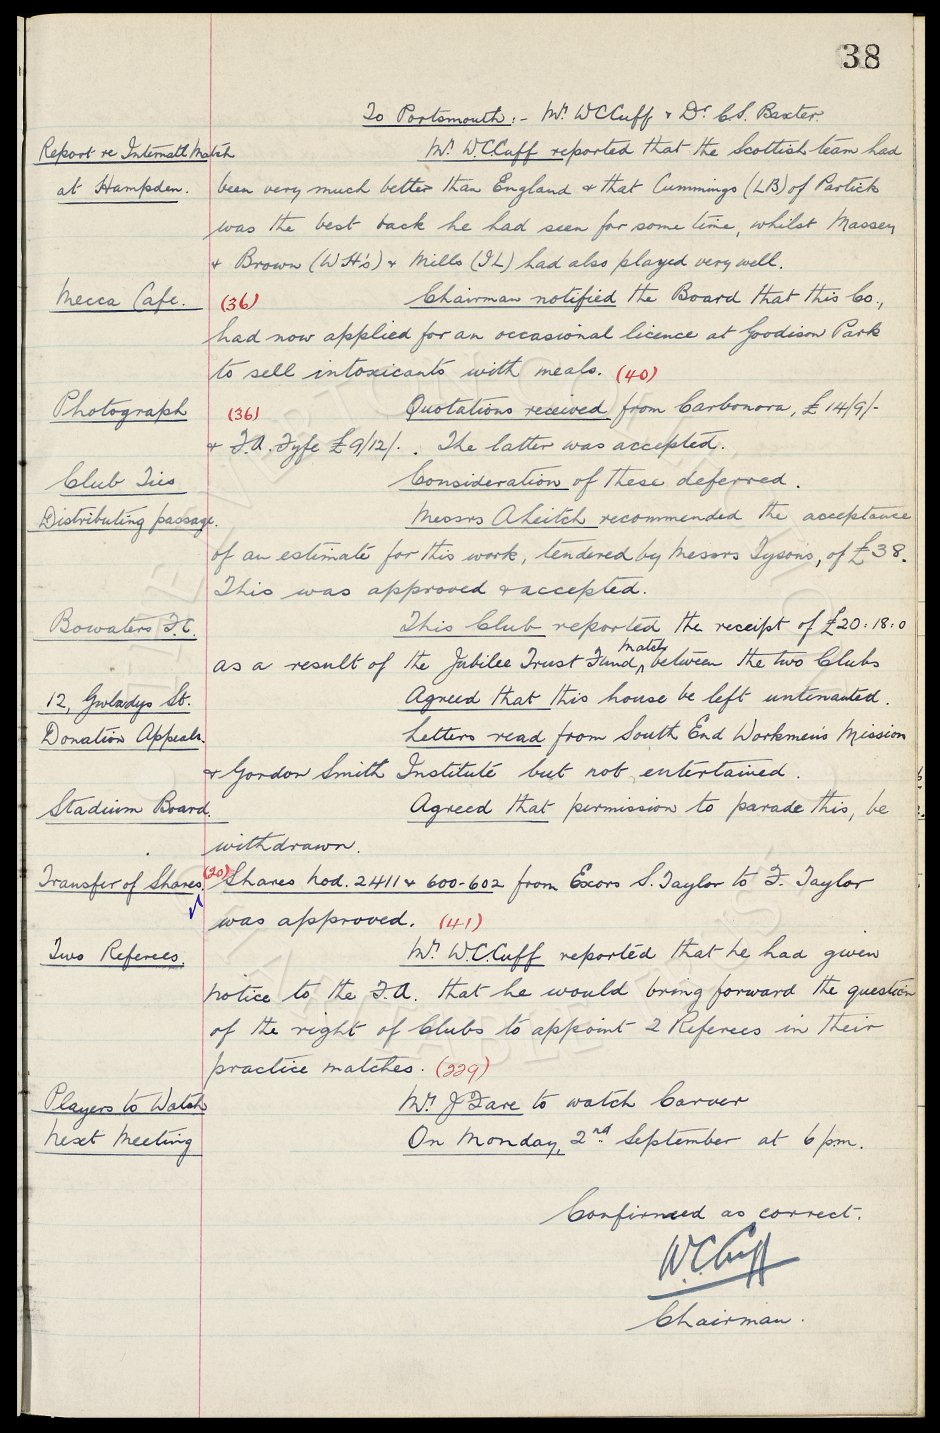 38
To Portsmouth:- Mr. W.C.Cuff & Dr. C.S. Baxter.
Report re Internatl Match Mr. W.C.Cuff reported that the Scottish team had
at Hampden. been very much better than England & that Cummings (LB) of Partick
was the best back he had seen for some time, whilst Massey
& Brown (WH's) & Mills (IL) had also played very well.
Mecca Cafe. (36) Chairman notified the Board that this Co.,
had now applied for an occasional licence at Goodison Park
to sell intoxicants with meals. (40)
Photograph (36) Quotations received from Carbonora, £14/9/-
& F.A. Fyfe £9/12/-. The latter was accepted.
Club Ties Consideration of these deferred.
Distributing passage. Messrs A Leitch recommended the acceptance
of an estimate for this work, tendered by Messrs Tysons, of £38.
This was approved & accepted.
Bowaters F.C. This Club reported the receipt of £20:18:0
as a result of the Jubilee Trust Fund match between the two Clubs
12, Gwladys St. Agreed that this house be left untenanted.
Donation Appeals. Letters read from South End Workmens Mission
& Gordon Smith Institute but not entertained.
Stadium Board. Agreed that permission to parade this, be
withdrawn.
Transfer of Shares. (20) Shares Nod. 2411 & 600-602 from Exors S. Taylor to F. Taylor
was approved. (41)
Two Referees. Mr. W.C.Cuff reported that he had given
notice to the F.A. that he would bring forward the question
of the right of Clubs to appoint 2 Referees in their
practice matches. (229)
Players to Watch Mr. J Fare to watch Carver
Next Meeting On Monday, 2nd September at 6 p.m.
Confirmed as correct.
W.C.Cuff
Chairman.